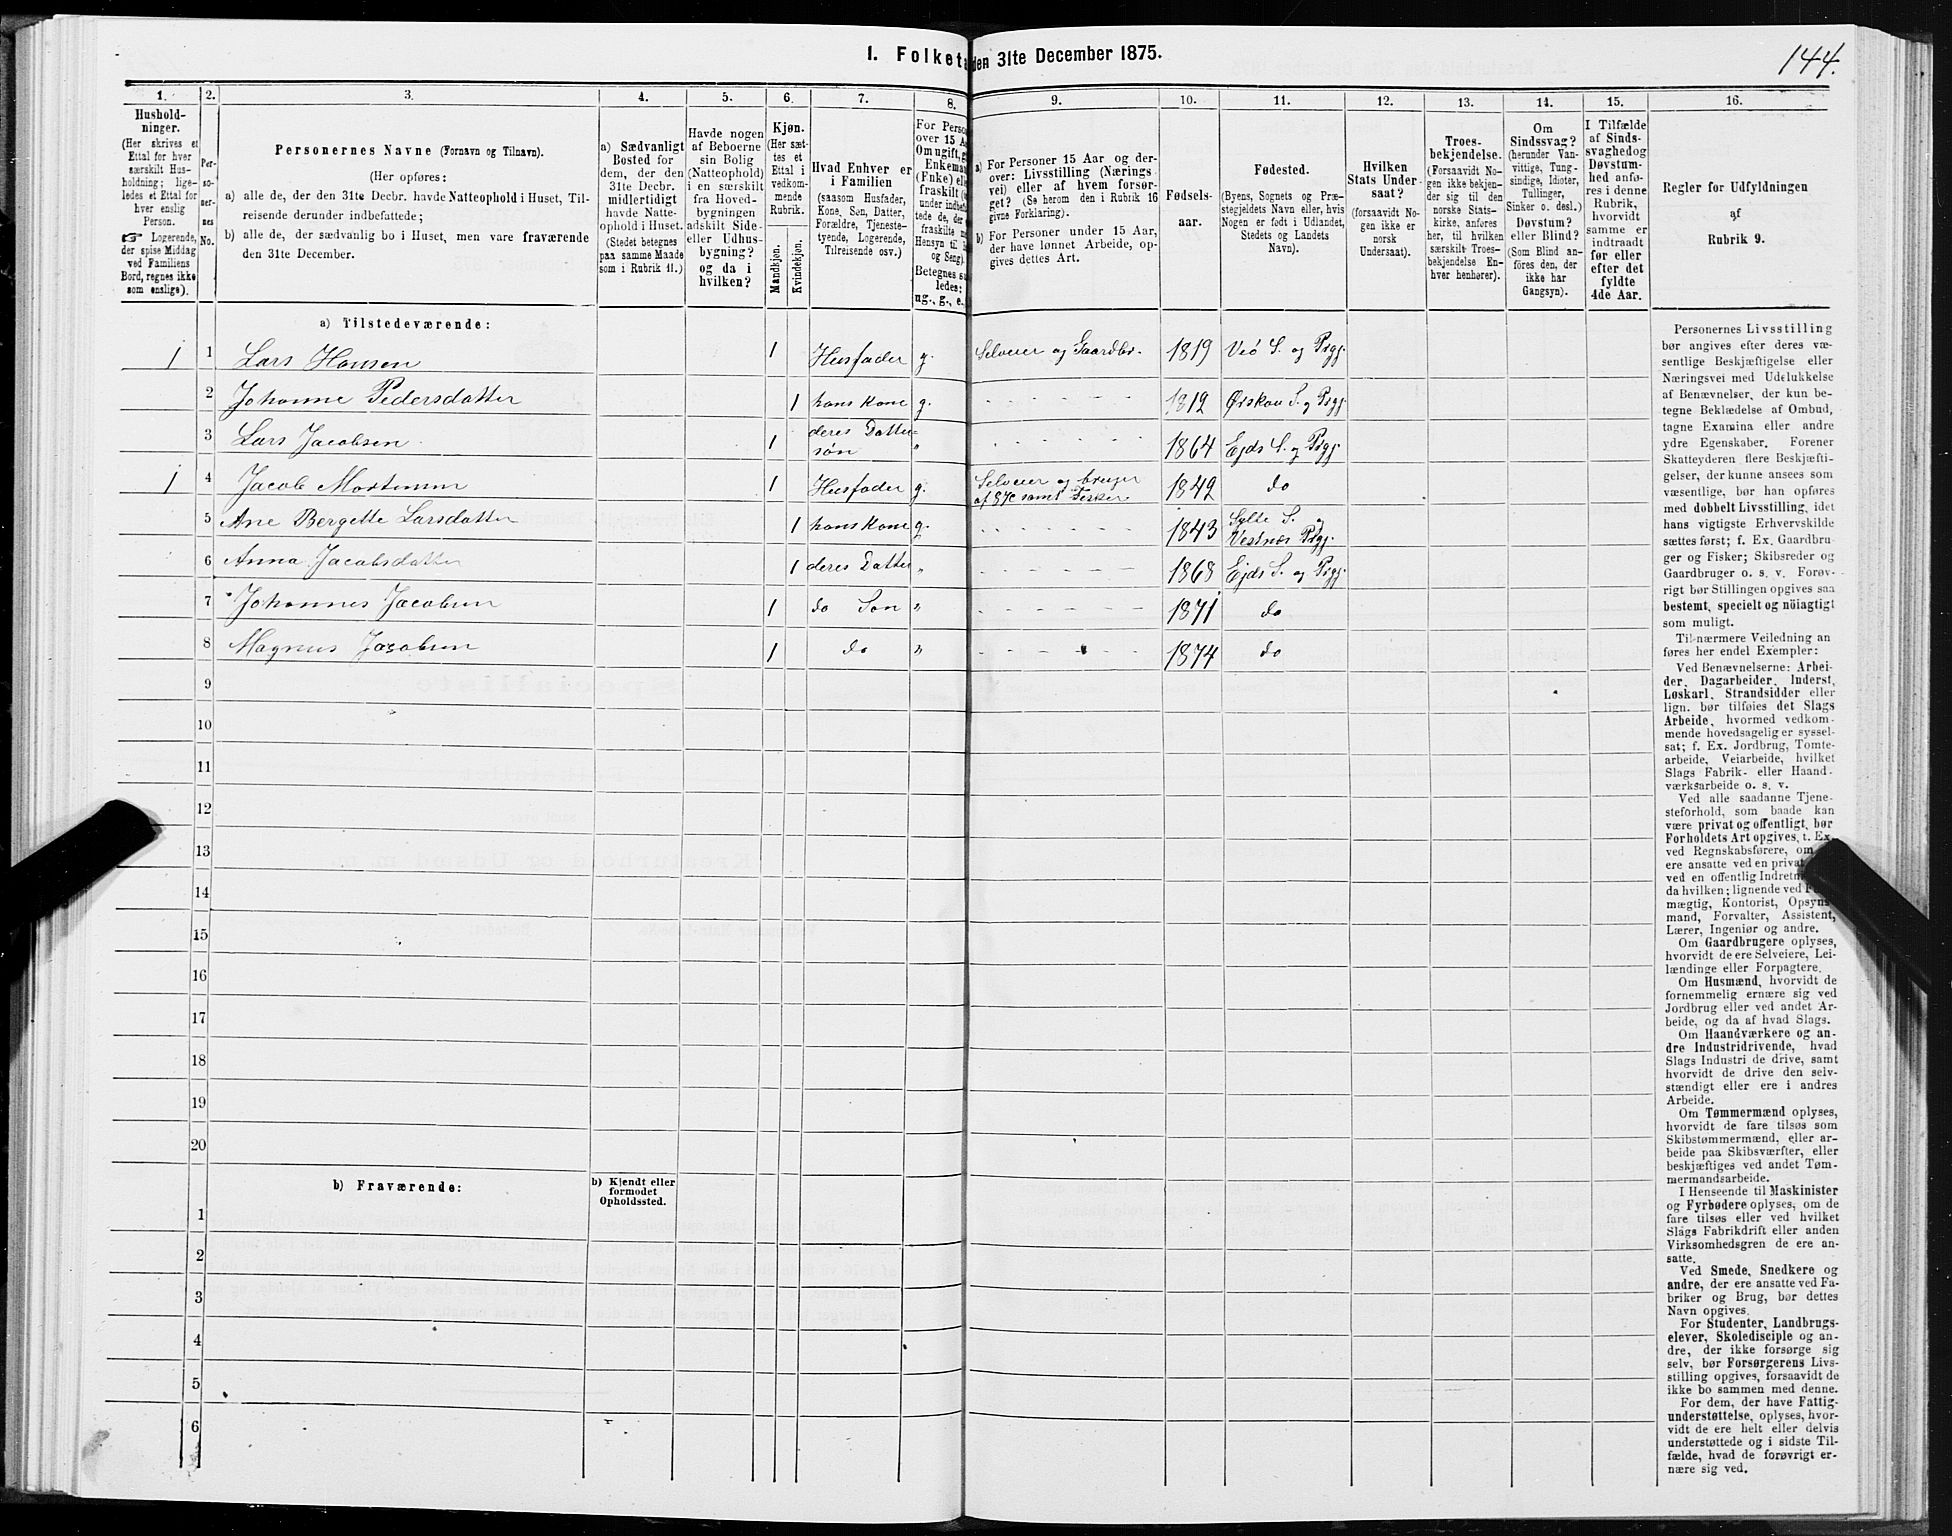 1. Folketa den 31te December 1875.
144.
1. 2. 3. 4. 5. 6. 7. 8. 9. 10. 11. 12. 13. 14. 15. 16.
Hushold-
ninger.
(Her skrives et
Ettal for hver
særskilt Hus-
holdning; lige-
ledes et Ettal for
hver enslig
Person.
☞ Logerende,
der spise Middag
ved Familiens
Bord, regnes ikke
som enslige).
Per-
so-
ner-
nes
No.
Personernes Navne (Fornavn og Tilnavn).
(Her opføres:
a) alle de, der den 31te Decbr. havde Natteophold i Huset, Til-
reisende derunder indbefattede;
b) alle de, der sædvanlig bo i Huset, men vare fraværende
den 31te December.
a) Sædvanligt
Bosted for
dem, der den
31te Decbr.
midlertidigt
havde Natte-
ophold i Huset.
(Stedet betegnes
paa samme Maade
som i Rubrik 11.)
Havde nogen
af Beboerne
sin Bolig
(Natteophold)
i en særskilt
fra Hoved-
bygningen
adskilt Side-
eller Udhus-
bygning?
og da i
hvilken?
Kjøn.
(Her sæt-
tes et
Ettal i
vedkom-
mende
Rubrik.
Mandkjøn.
Kvindekjøn.
Hvad Enhver er
i Familien
(saasom Husfader,
Kone, Søn, Datter,
Forældre, Tjeneste-
tyende, Logerende,
Tilreisende osv.)
For Person
over 15 Aa
Om ugift, g
Enkema
(Enke) el
fraskilt (
under indbe
tede de, der
fraskilte m
Hensyn til
og Seng).
Betegnes s
ledes:
ug., g., e.,
a) For Personer 15 Aar og der-
over: Livsstilling (Nærings-
vei) eller af hvem forsør-
get? (Se herom den i Rubrik 16
givne Forklaring).
b) For Personer under 15 Aar,
der have lønnet Arbeide, op-
gives dettes Art.
Fødsels-
aar.
Fødested.
(Byens, Sognets og Præ-
stegjeldets Navn eller, hvis
Nogen er født i Udlandet,
Stedets og Landets
Navn).
Hvilken
Stats Under-
saat?
(forsaavidt No-
gen ikke er
norsk
Undersaat).
Troes-
bekjendelse.
(Forsaavidt No-
gen ikke bekjen-
der sig til den
norske Stats-
kirke, anføres
her, til hvilken
særskilt Troes-
bekjendelse En-
hver henhører).
Om
Sindssvag?
(herunder Van-
vittige, Tung-
sindige, Idioter,
Tullinger,
Sinker o. desl.)
Døvstum?
eller Blind?
(Som Blind an-
føres den, der
ikke har
Gangsyn).
I Tilfælde
af Sinds-
svaghedog
Døvstum-
hed anfø-
res i denne
Rubrik,
hvorvidt
samme er
indtraadt
før eller
efter det
fyldte
4de Aar.
Regler for Udfyldningen
af
Rubrik 9.
a) Tilstedeværende:
1 1 Lars Hansen 1 Husfader g. Selveier og Gaardbr. 1819 Veö S. og Prgj.
2 Johanne Pedersdatter 1 hans Kone g. 1812 Ørskou S. og Prgj.
3 Lars Jacobsen 1 deres Datter-
søn " 1864 Ejds S. og Prgj.
1 4 Jacob Mortensen 1 Husfader g. Selveier og bruger
af G7c samt Fisker 1842 do
5 Ane Bergette Larsdatter 1 hans Kone g. 1843 Sylte S. og
Vestnæs Prgj.
6 Anna Jacobsdatter 1 deres Datter " 1868 Ejds S. og Prgj.
7 Johannes Jacobsen 1 do Søn " 1871 do
8 Magnus Jacobsen 1 do " 1874 do
9
10
11
12
13
14
15
16
17
18
19
20
b) Fraværende:
b) Kjendt eller
formodet
Opholdssted.
1
2
3
4
5
6
Personernes Livsstilling
bør angives efter deres væ-
sentlige Beskjæftigelse eller
Næringsvei med Udelukkelse
af Benævnelser, der kun be-
tegne Beklædelse af Ombud,
tagne Examina eller andre
ydre Egenskaber. Forener
Skatteyderen flere Beskjæfti-
gelser, der kunne ansees som
væsentlige, bør han opføres
med dobbelt Livsstilling, idet
hans vigtigste Erhvervskilde
sættes først; f. Ex. Gaardbru-
ger og Fisker; Skibsreder og
Gaardbruger o. s. v. Forøv-
rigt bør Stillingen opgives saa
bestemt, specielt og nöiagtigt
som muligt.
Til nærmere Veiledning an
føres her endel Exempler:
Ved Benævnelserne: Arbei-
der, Dagarbeider, Inderst,
Løskarl, Strandsidder eller
lign. bør tilføies det Slags
Arbeide, hvormed vedkom-
mende hovedsagelig er syssel-
sat; f. Ex. Jordbrug, Tomte-
arbeide, Veiarbeide, hvilket
Slags Fabrik- eller Haand-
værksarbeide o. s. v.
Ved alle saadanne Tjene-
steforhold, som baade kan
være privat og offentligt, bør
Forholdets Art opgives, t. Ex.
ved Regnskabsførere, om
ere ansatte ved en privat
ved en offentlig Indretn
da hvilken; lignende ved F
mægtig, Kontorist, Opsyns-
mand, Forvalter, Assistent,
Lærer, Ingeniør og andre.
Om Gaardbrugere oplyses,
hvorvidt de ere Selveiere, Lei-
lændinge eller Forpagtere.
Om Husmænd, hvorvidt de
fornemmelig ernære sig ved
Jordbrug eller ved andet Ar-
beide, og da af hvad Slags.
Om Haandværkere og an-
dre Industridrivende, hvad
Slags Industri de drive, samt
hvorvidt de drive den selv-
stændigt eller ere i andres
Arbeide.
Om Tømmermænd oplyses,
hvorvidt de fare tilsøs som
Skibstømmermænd, eller ar-
beide paa Skibsværfter, eller
beskjæftiges ved andet Tøm-
mermandsarbeide.
I Henseende til Maskinister
og Fyrbødere oplyses, om de
fare tilsøs eller ved hvilket
Slags Fabrikdrift eller anden
Virksomhedsgren de ere an-
satte.
Ved Smede, Snedkere og
andre, der ere ansatte ved Fa-
briker og Brug, bør dettes
Navn opgives.
For Studenter, Landbrugs-
elever, Skoledisciple og an-
dre, der ikke forsørge sig
selv, bør Forsørgerens Livs-
stilling opgives, forsaavidt de
ikke bo sammen med denne.
For dem, der have Fattig-
understøttelse, oplyses, hvor-
vidt de ere helt eller delvis
understøttede og i sidste Til-
fælde, hvad de forøvrigt er-
nære sig ved.